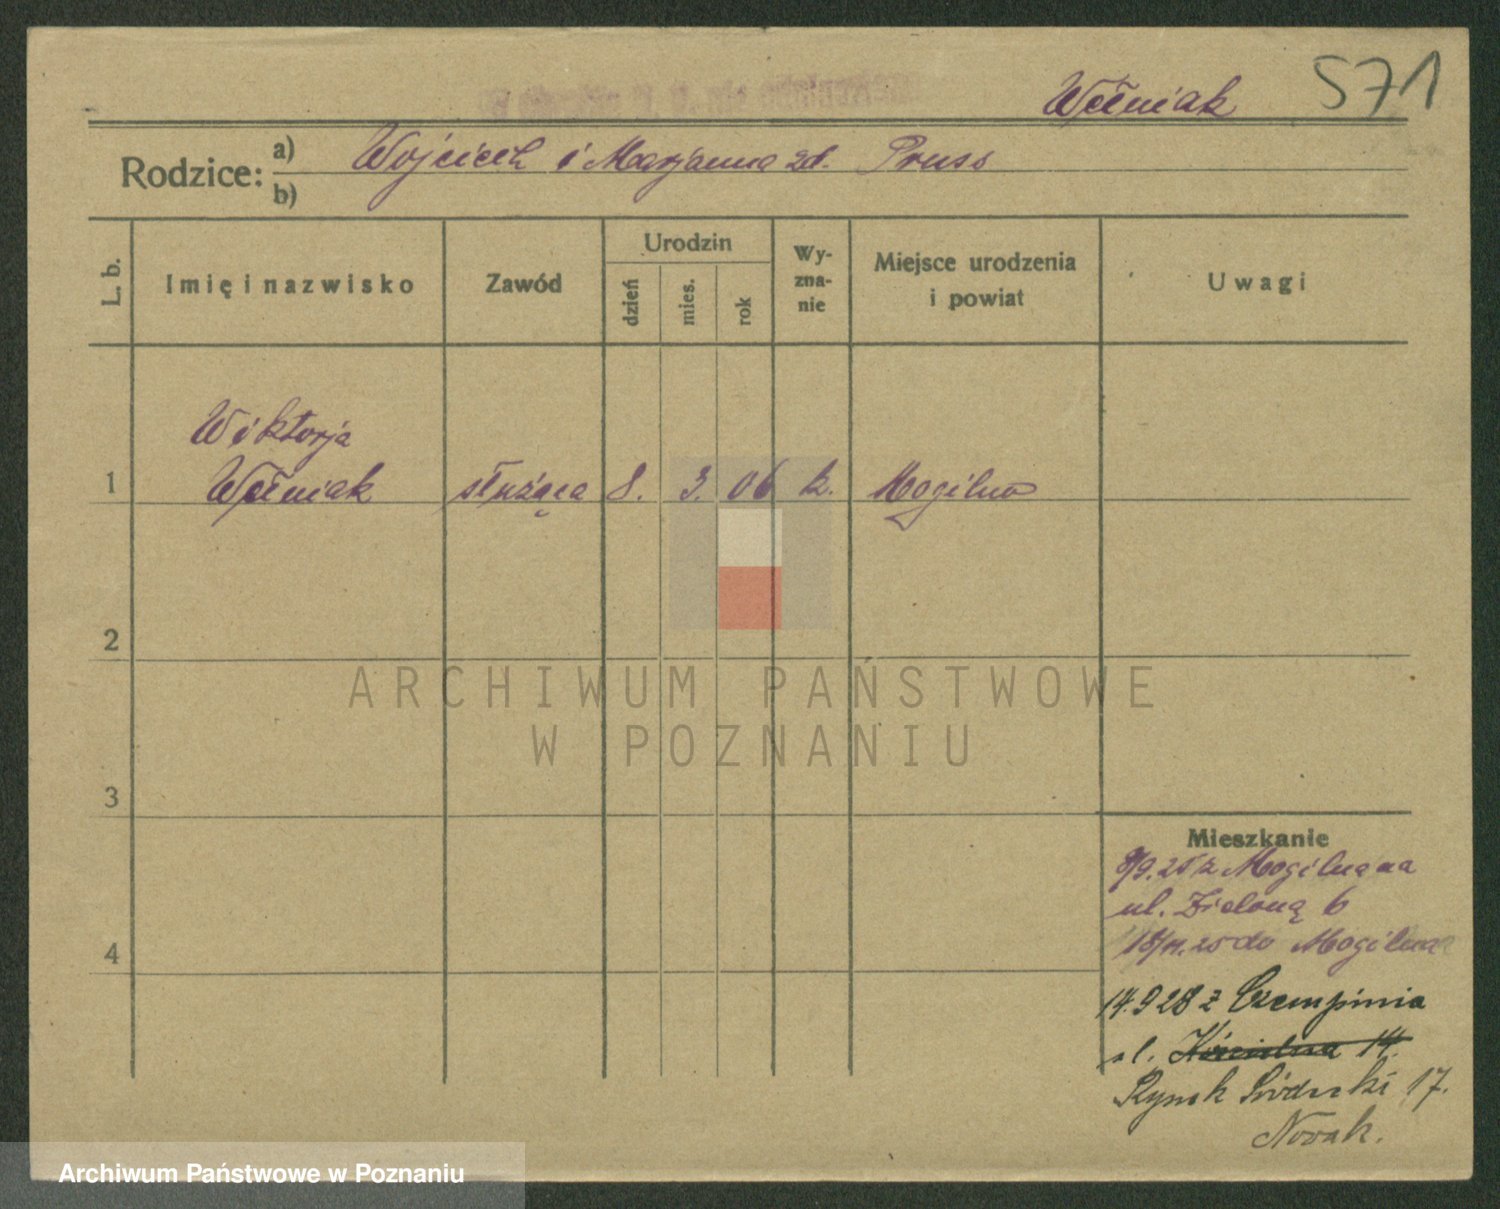 Wełniak 571
Rodzice: a) Wojciech i Marjanna zd. Pruss
b)
L. b. Imię i nazwisko Zawód Urodzin dzień mies. rok Wyznanie Miejsce urodzenia i powiat Uwagi
Wiktorja
1 Wełniak służąca 8. 3. 06 k. Mogilno
2
ARCHIWUM PAŃSTWOWE
W POZNANIU
3
Mieszkanie
9/9.25 z Mogilna na
ul. Zieloną 6
4
18/11.25 do Mogilna
14.9 28 z Czempinia
ul. Kościelna 14.
Rynek Śródecki 17.
Nowak.
Archiwum Państwowe w Poznaniu